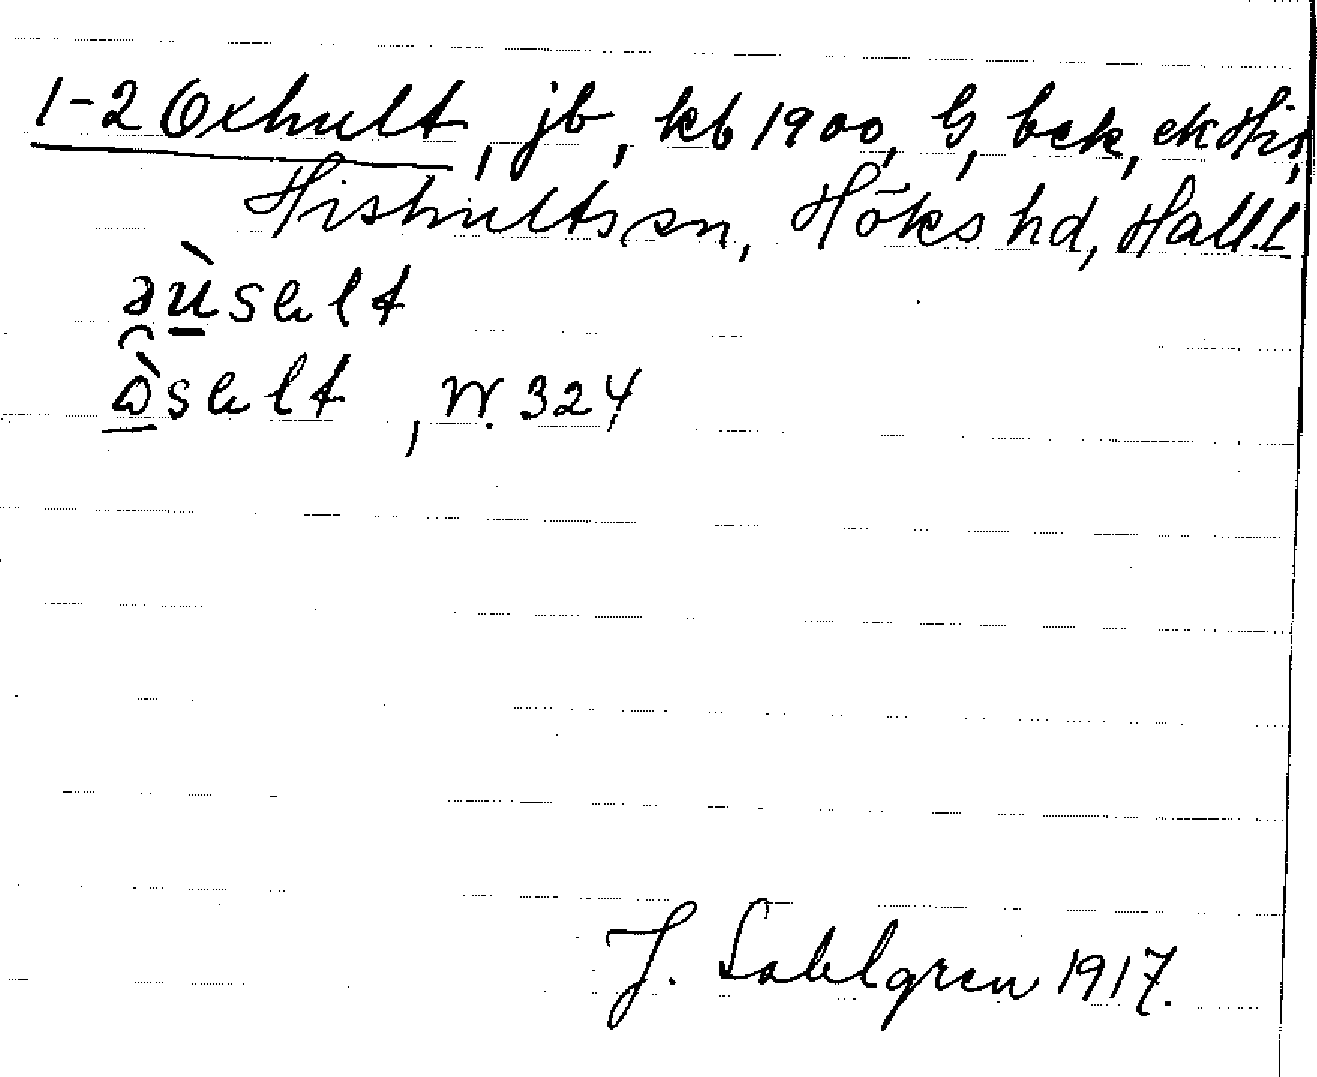 1-2 Oxhult, jb, kb 1900, G, bek, ek His,
Hishults sn, Höks hd, Hall. l
əùsελt
òsελt, W. 324
J. Sahlgren 1917.